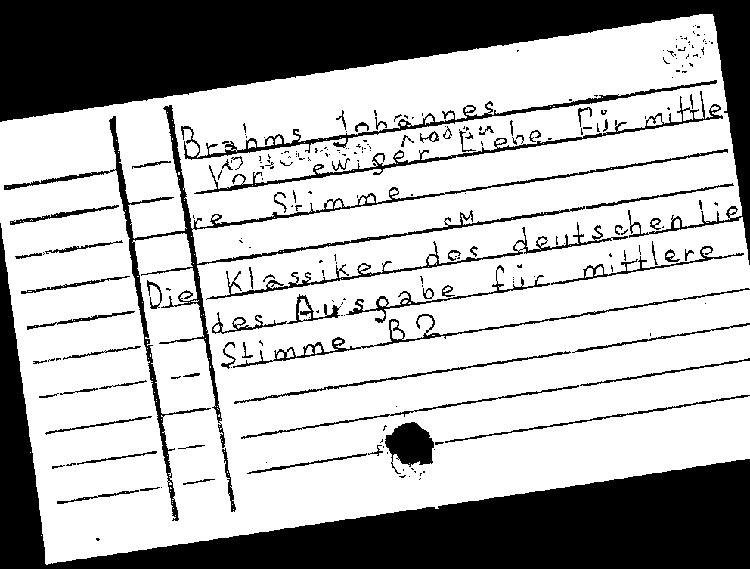 Brahms, Johannes
Von ewiger Liebe. Für mittle
re Stimme.
cM
Die Klassiker des deutschen Lie
des. Ausgabe für mittlere
Stimme B2